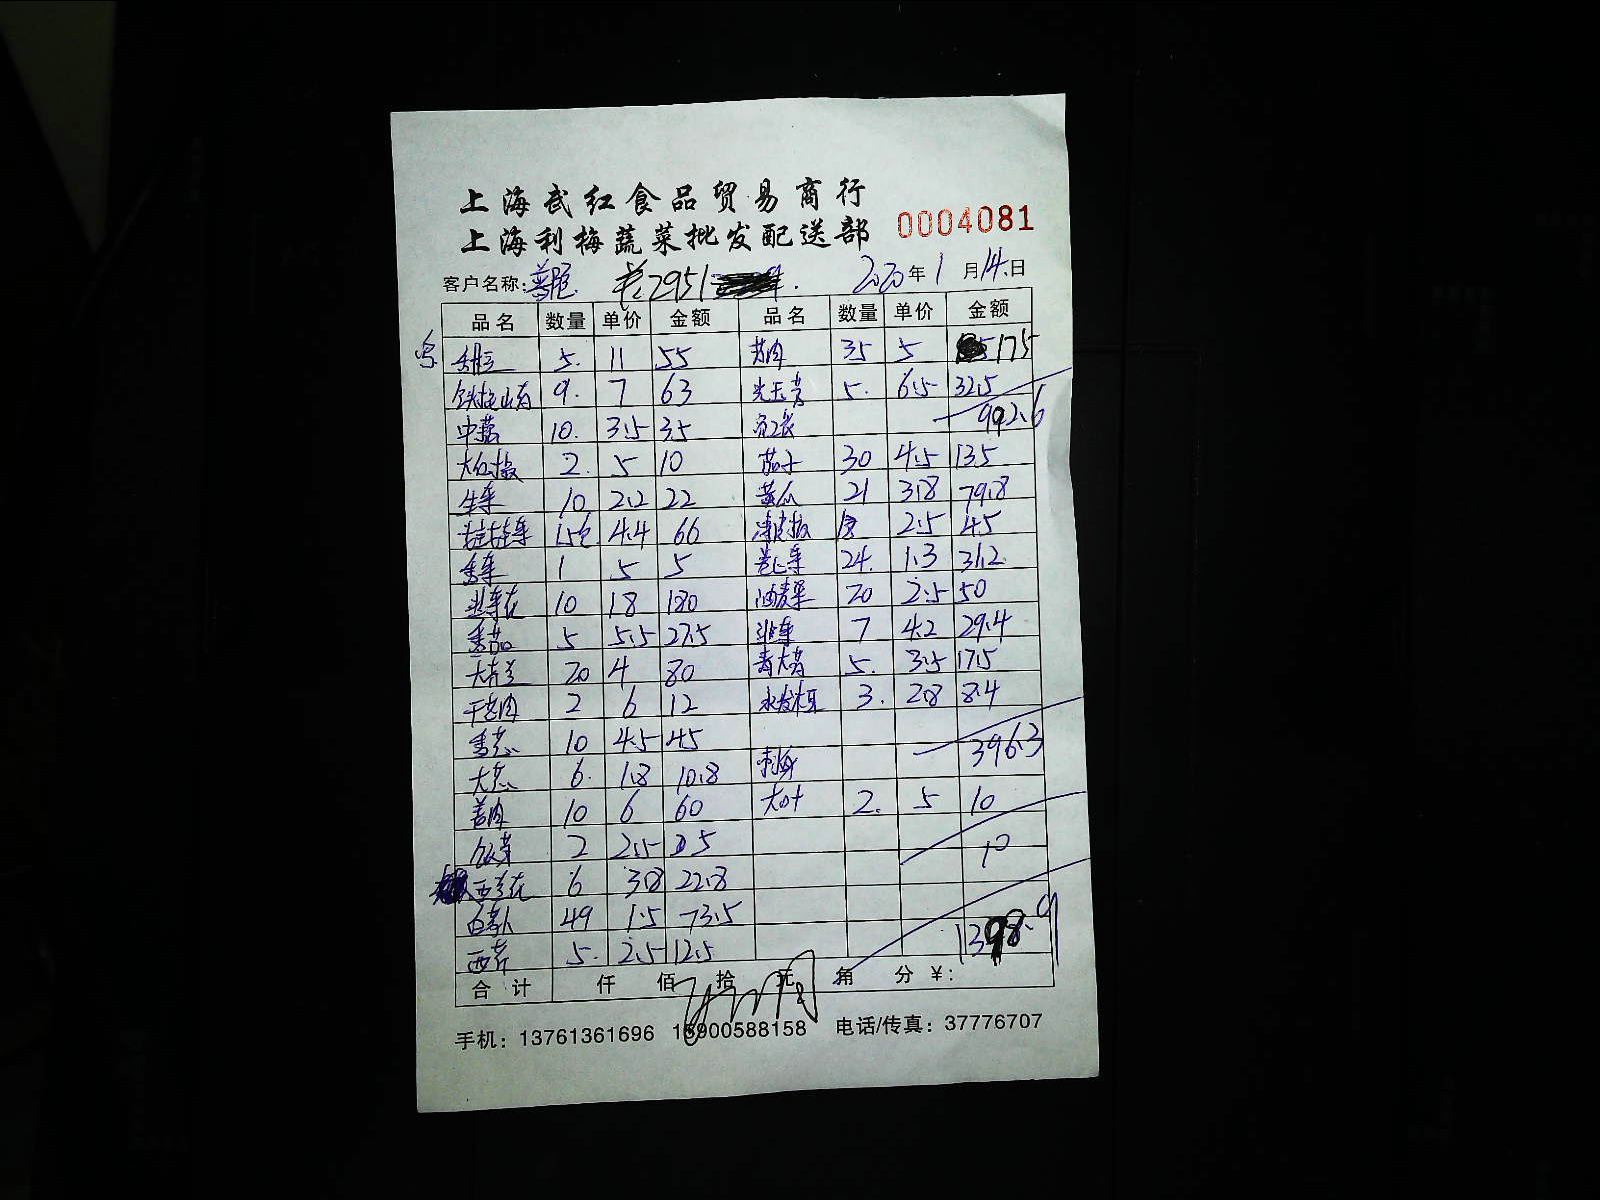 上海武红食品贸易商行
上海利梅蔬菜批发配送部
0004081
客户名称: 2951 2020年1月14日
品名 数量 单价 金额 品名 数量 单价 金额
5. 11 55 35 5 175
铁棍山药 9. 7 63 5. 6.5 32.5
中菇 10. 3.5 35 992.6
大红椒 2. 5 10 茄子 30 4.5 135
生菜 10 2.2 22 黄瓜 21 3.8 79.8
娃娃菜 15包 4.4 66 2.5 45
香菜 1 5 5 卷心菜 24. 1.3 31.2
韭菜花 10 18 180 油麦菜 20 2.5 50
番茄 5 5.5 27.5 韭菜 7 4.2 29.4
20 4 80 青大蒜 5. 3.5 17.5
2 6 12 3. 2.8 8.4
香葱 10 4.5 45
大葱 6. 1.8 10.8 刺身 396.3
姜肉 10 6 60 大叶 2. 5 10
2 2.5 5 10
西兰花 6 3.8 22.8
白萝卜 49 1.5 73.5
西芹 5. 2.5 12.5 1398.9
合计 仟 佰 拾 元 角 分 ¥:
手机: 13761361696 15900588158 电话/传真: 37776707